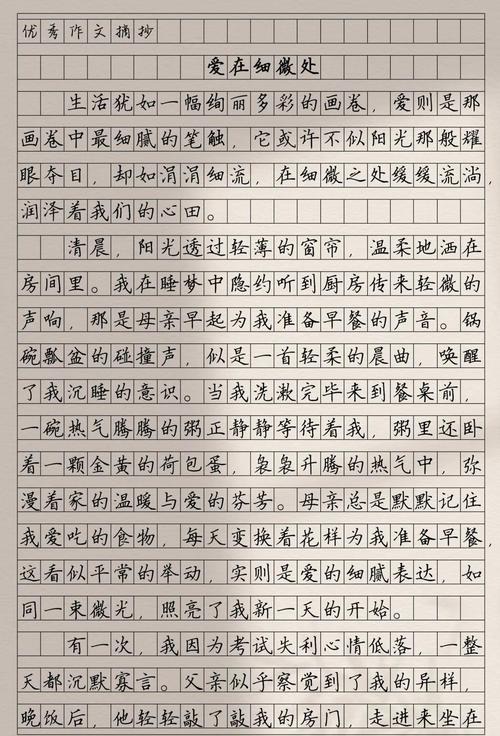 优秀作文摘抄
爱在细微处
生活犹如一幅绚丽多彩的画卷，爱则是那
画卷中最细腻的笔触，它或许不似阳光那般耀
眼夺目，却如涓涓细流，在细微之处缓缓流淌，
润泽着我们的心田。
清晨，阳光透过轻薄的窗帘，温柔地洒在
房间里。我在睡梦中隐约听到厨房传来轻微的
声响，那是母亲早起为我准备早餐的声音。锅
碗瓢盆的碰撞声，似是一首轻柔的晨曲，唤醒
了我沉睡的意识。当我洗漱完毕来到餐桌前，
一碗热气腾腾的粥正静静等待着我，粥里还卧
着一颗金黄的荷包蛋，袅袅升腾的热气中，弥
漫着家的温暖与爱的芬芳。母亲总是默默记住
我爱吃的食物，每天变换着花样为我准备早餐，
这看似平常的举动，实则是爱的细腻表达，如
同一束微光，照亮了我新一天的开始。
有一次，我因为考试失利心情低落，一整
天都沉默寡言。父亲似乎察觉到了我的异样，
晚饭后，他轻轻敲了敲我的房门，走进来坐在